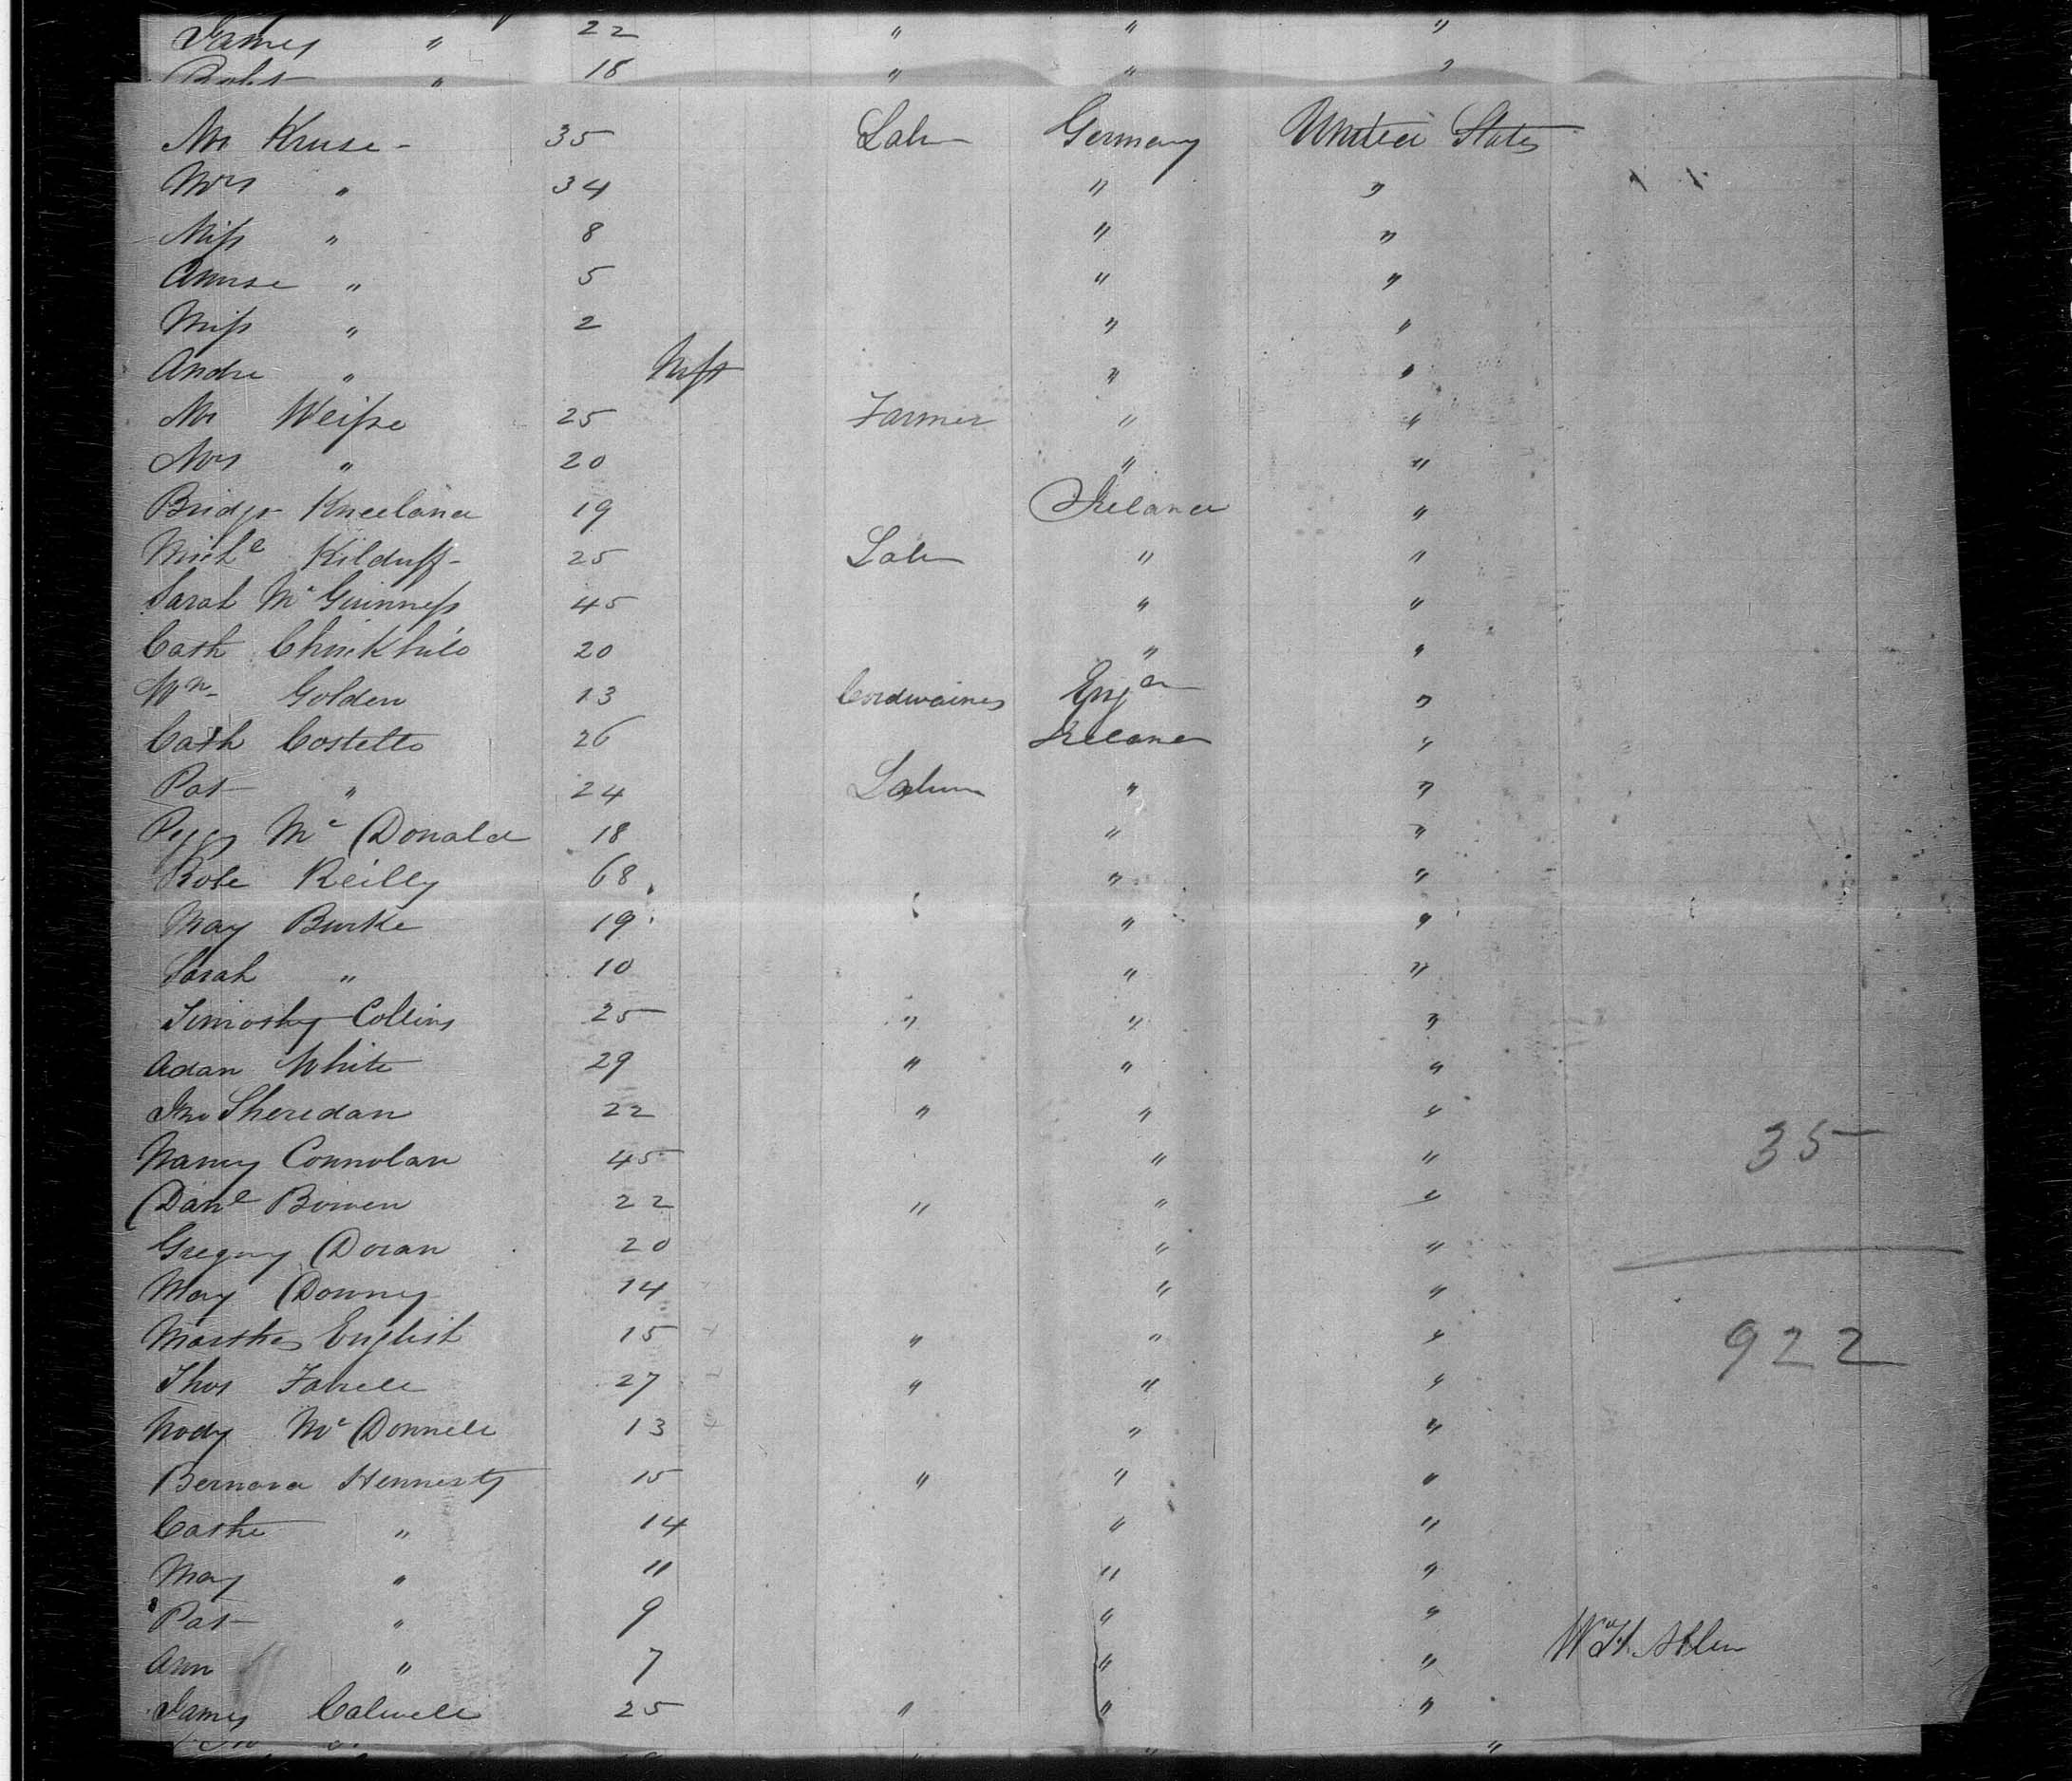 James " 22 " " "
Robt " 18 " " "
Mr Kruse - 35 Labr Germany United States
Mrs " 34 " "
Miss " 8 " "
" 5 " "
Miss " 2 " "
Andre " Inft " "
Mr Weisse 25 Farmer " "
Mrs " 20 " "
Bridgt Kneeland 19 Ireland "
Michl Kilduff - 25 Labr " "
Sarah Mc Guinness 45 " "
Cath 20 " "
Wm Golden 13 Cordwainer Engd "
Cath Costello 26 Ireland "
Pat " 24 Labr " "
Peggy Mc Donald 18 " "
Rose Reilly 68 " "
May Burke 19 " "
Sarah " 10 " "
Timothy Collins 25 " " "
Adam White 29 " " "
Jno Sheridan 22 " " "
Nancy Connolan 45 " "
35
Danl Bowen 22 " " "
Gregory Doran 20 " "
May Downey 14 " "
Martha English 15 " " "
922
Thos Farrell 27 " " "
Mc Donnell 13 " "
Bernard Hennesty 15 " " "
Cathe " 14 " "
May " 11 " "
Pat " 9 " "
Ann " 7 " " Wm H. Allen
James Calwell 25 " " "